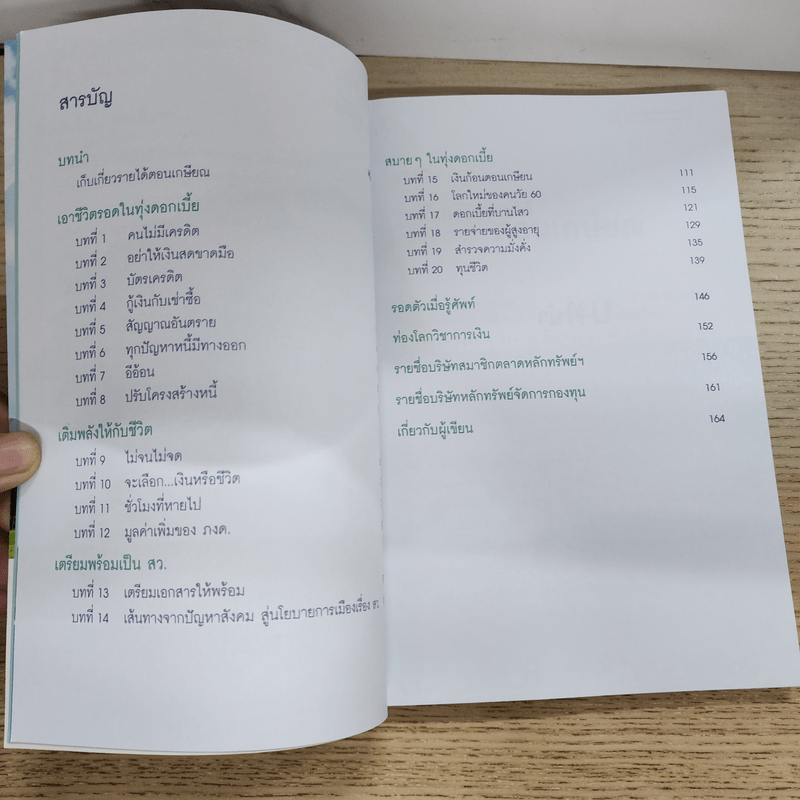 สารบัญ
บทนำ
เก็บเกี่ยวรายได้ตอนเกษียณ
เอาชีวิตรอดในทุ่งดอกเบี้ย
บทที่ 1 คนไม่มีเครดิต
บทที่ 2 อย่าให้เงินสดขาดมือ
บทที่ 3 บัตรเครดิต
บทที่ 4 กู้เงินกับเช่าซื้อ
บทที่ 5 สัญญาณอันตราย
บทที่ 6 ทุกปัญหาหนี้มีทางออก
บทที่ 7 อีอ้อน
บทที่ 8 ปรับโครงสร้างหนี้
เติมพลังให้กับชีวิต
บทที่ 9 ไม่จนไม่จด
บทที่ 10 จะเลือก...เงินหรือชีวิต
บทที่ 11 ชั่วโมงที่หายไป
บทที่ 12 มูลค่าเพิ่มของ ภงด.
เตรียมพร้อมเป็น สว.
บทที่ 13 เตรียมเอกสารให้พร้อม
บทที่ 14 เส้นทางจากปัญหาสังคม สู่นโยบายการเมืองเรื่อง สว.
สบาย ๆ ในทุ่งดอกเบี้ย
บทที่ 15 เงินก้อนตอนเกษียน 111
บทที่ 16 โลกใหม่ของคนวัย 60 115
บทที่ 17 ดอกเบี้ยที่บานไสว 121
บทที่ 18 รายจ่ายของผู้สูงอายุ 129
บทที่ 19 สำรวจความมั่งคั่ง 135
บทที่ 20 ทุนชีวิต 139
รอดตัวเมื่อรู้ศัพท์ 146
ท่องโลกวิชาการเงิน 152
รายชื่อบริษัทสมาชิกตลาดหลักทรัพย์ฯ 156
รายชื่อบริษัทหลักทรัพย์จัดการกองทุน 161
เกี่ยวกับผู้เขียน 164